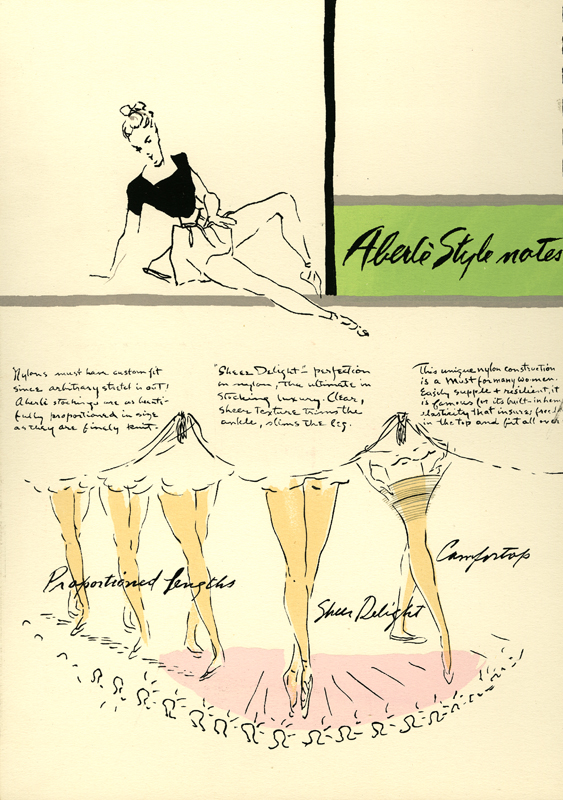 Aberlè Style notes
Nylons must have custom fit
since arbitrary stretch is out!
Aberlè stockings are as beauti-
fully proportioned in size
as they are finely knit.
"Sheer Delight" - perfection
in nylon, the ultimate in
stocking luxury. Clear,
sheer texture trims the
ankle, slims the leg.
This unique nylon construction
is a must for many women.
Easily supple + resilient, it
is famous for its built-in
elasticity that insures
in the top and fit all over
Proportioned lengths
Sheer Delight
Camfortop